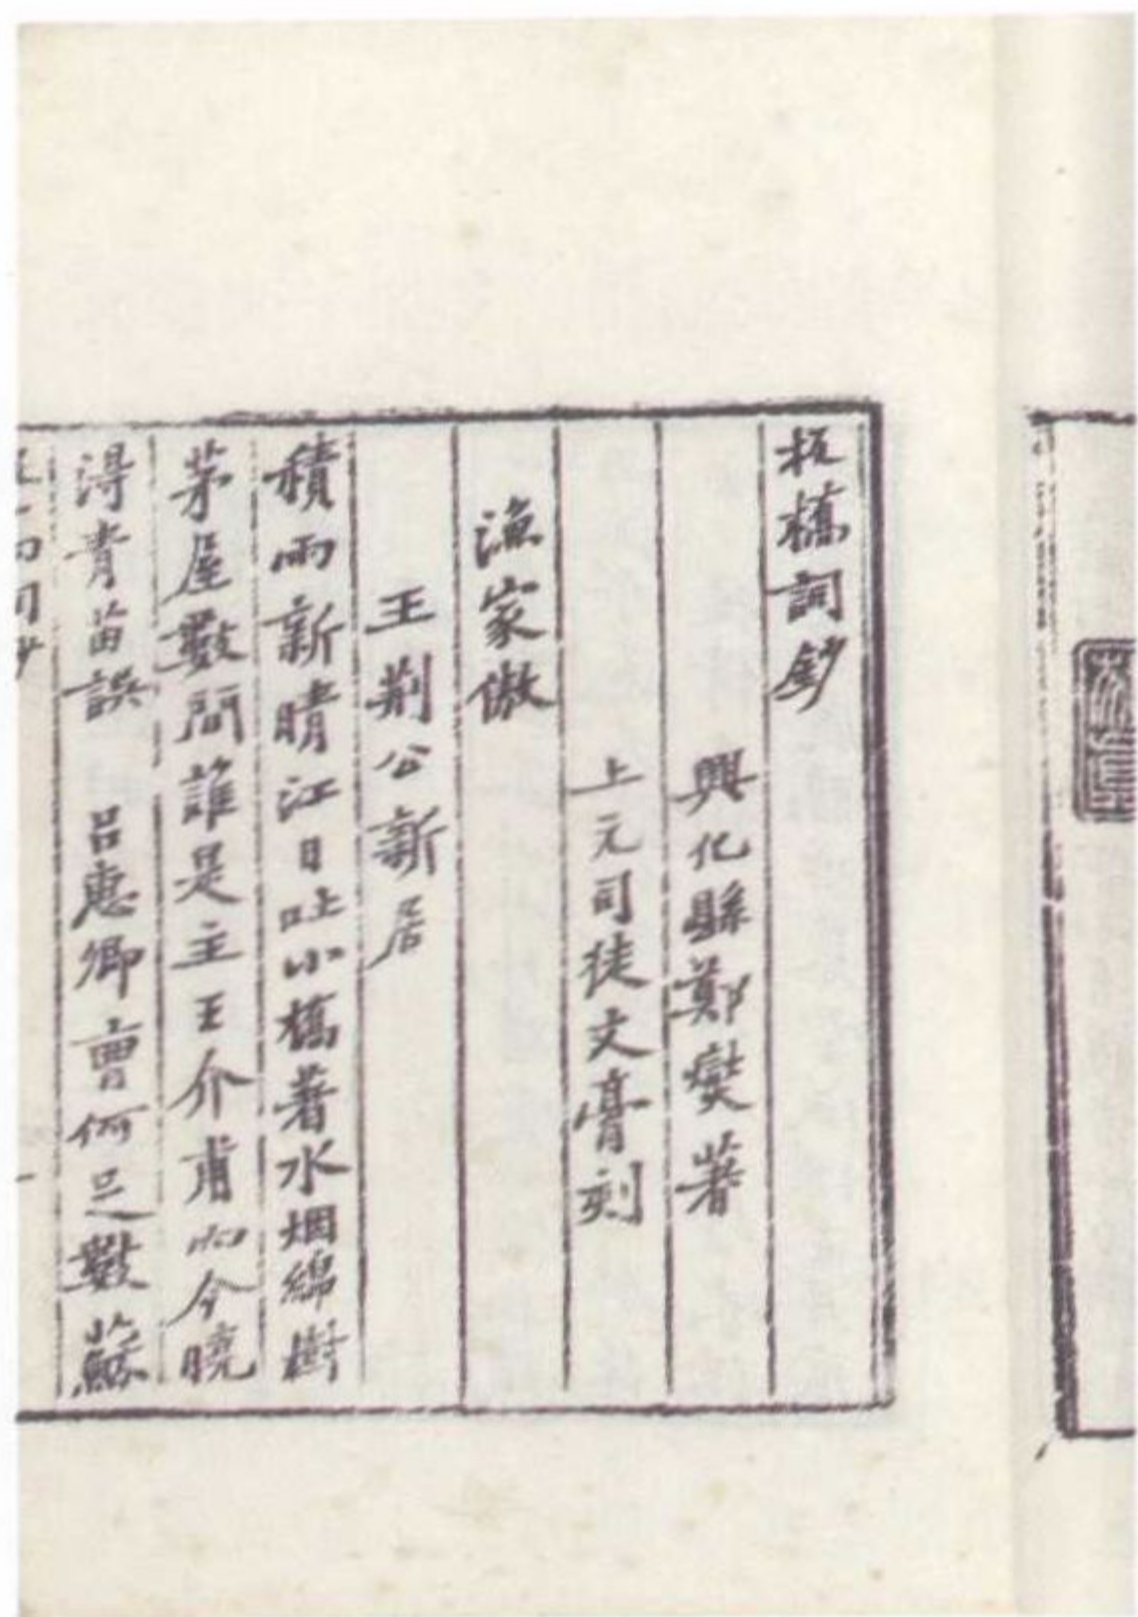 板橋詞鈔
興化縣鄭燮著
上元司徒文膏刻
漁家傲
王荆公新居
積雨新晴江日吐小橋著水烟綿樹
茅屋數間誰是主王介甫而今曉
得青苗誤 呂惠卿曹何足數蘇